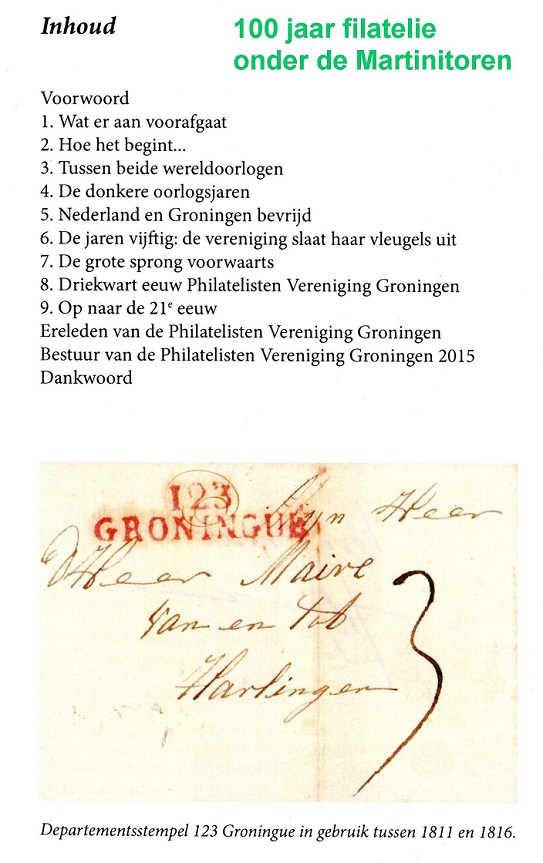 Inhoud
100 jaar filatelie
onder de Martinitoren
Voorwoord
1. Wat er aan voorafgaat
2. Hoe het begint...
3. Tussen beide wereldoorlogen
4. De donkere oorlogsjaren
5. Nederland en Groningen bevrijd
6. De jaren vijftig: de vereniging slaat haar vleugels uit
7. De grote sprong voorwaarts
8. Driekwart eeuw Philatelisten Vereniging Groningen
9. Op naar de 21e eeuw
Ereleden van de Philatelisten Vereniging Groningen
Bestuur van de Philatelisten Vereniging Groningen 2015
Dankwoord
123
GRONINGUE
Myn Heer
D'Heer Maire
van en tot
Harlingen
3
Departementsstempel 123 Groningue in gebruik tussen 1811 en 1816.